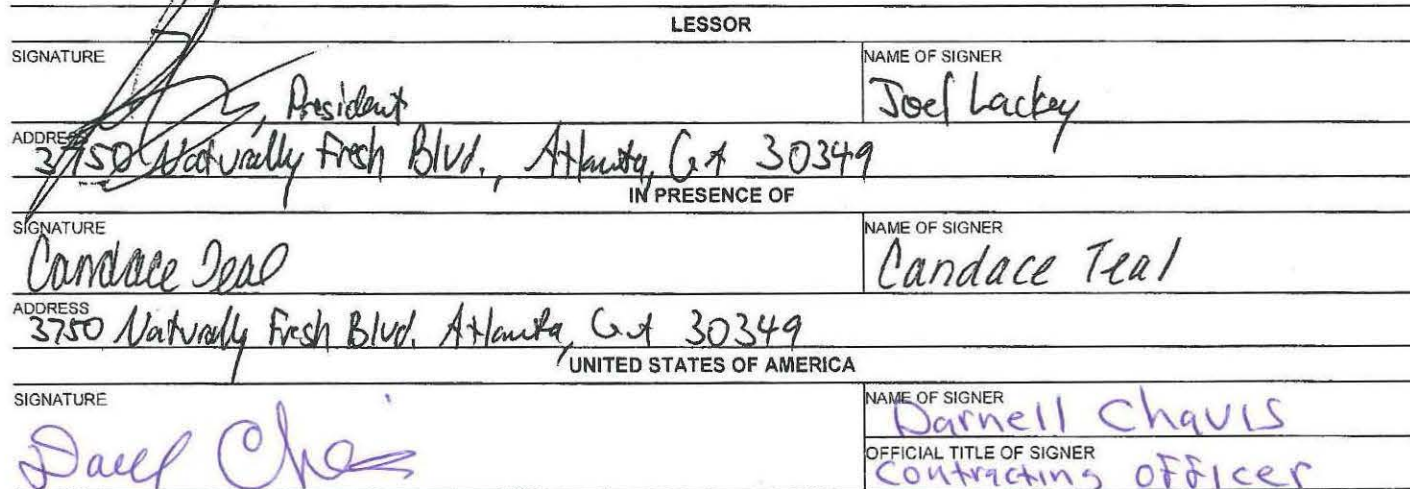 LESSOR
SIGNATURE
, President
NAME OF SIGNER
Joel Lackey
ADDRESS
3750 Naturally Fresh Blvd., Atlanta, GA 30349
IN PRESENCE OF
SIGNATURE
Candace Teal
NAME OF SIGNER
Candace Teal
ADDRESS
3750 Naturally Fresh Blvd. Atlanta, GA 30349
UNITED STATES OF AMERICA
SIGNATURE
NAME OF SIGNER
Darnell Chavis
OFFICIAL TITLE OF SIGNER
Contracting officer